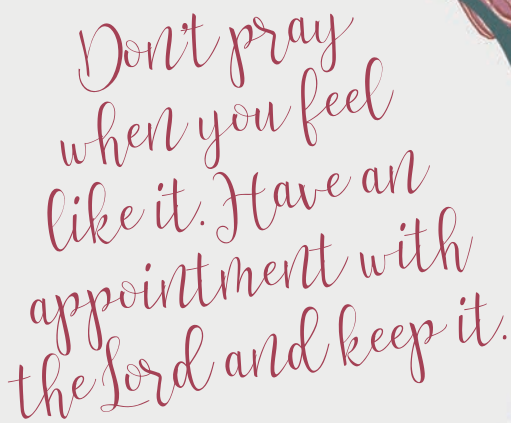 Don't pray
when you feel
like it. Have an
appointment with
the Lord and keep it.